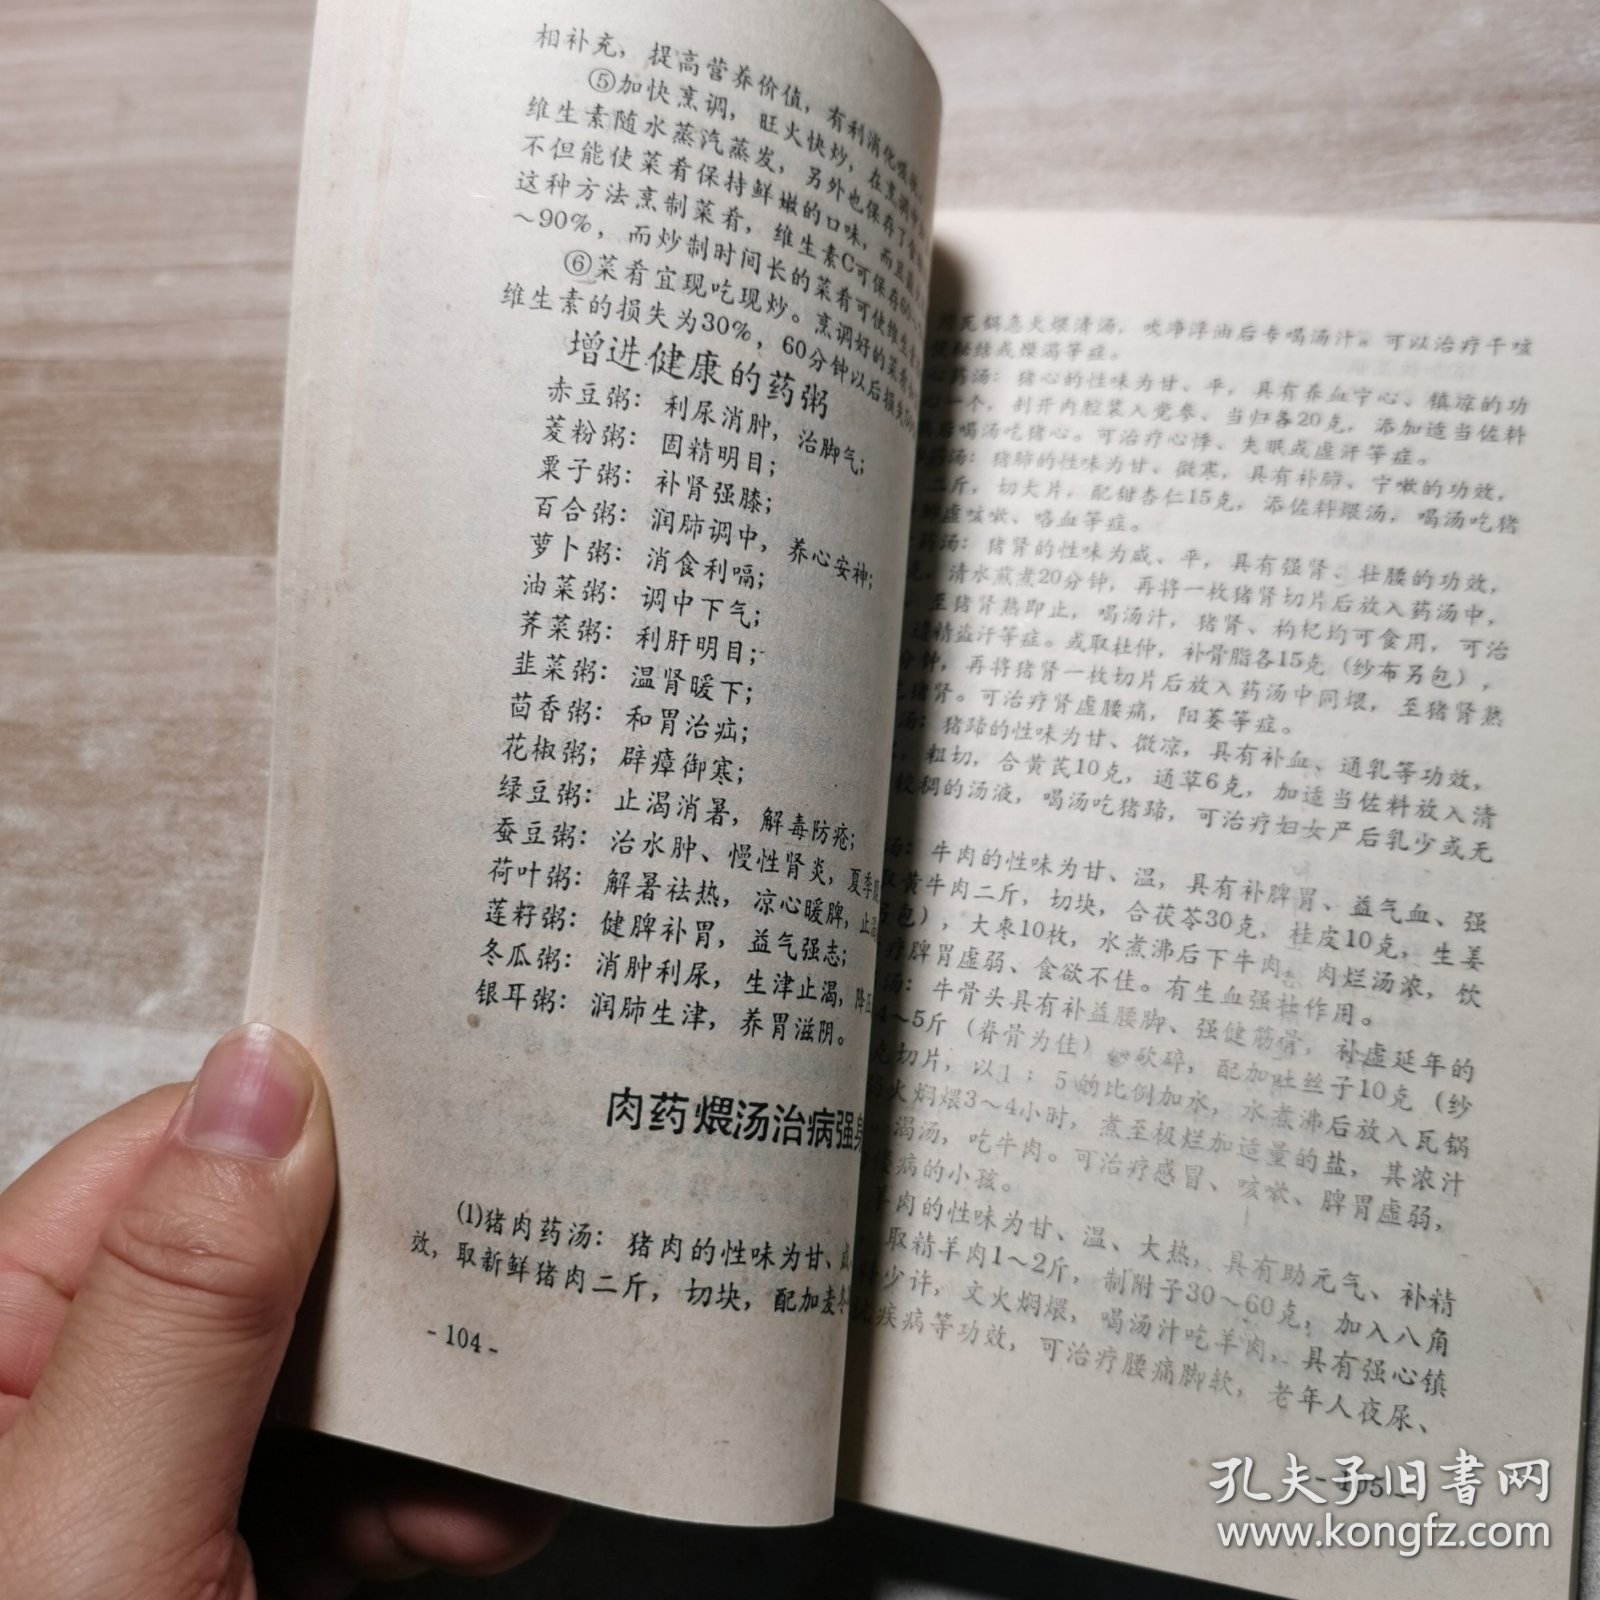 相补充，提高营养价值，有利消化吸收。
⑤加快烹调，旺火快炒，在烹调中
维生素随水蒸汽蒸发，另外也保存了
不但能使菜肴保持鲜嫩的口味，而且
这种方法烹制菜肴，维生素C可保存60～
～90%，而炒制时间长的菜肴可使维生素
⑥菜肴宜现吃现炒。烹调好的菜肴
维生素的损失为30%，60分钟以后损失
增进健康的药粥
赤豆粥：利尿消肿，治脚气；
菱粉粥：固精明目；
栗子粥：补肾强膝；
百合粥：润肺调中，养心安神；
萝卜粥：消食利嗝；
油菜粥：调中下气；
荠菜粥：利肝明目；
韭菜粥：温肾暖下；
茴香粥：和胃治疝；
花椒粥；辟瘴御寒；
绿豆粥：止渴消暑，解毒防疮；
蚕豆粥：治水肿、慢性肾炎，夏季
荷叶粥：解暑祛热，凉心暖脾，止
莲籽粥：健脾补胃，益气强志；
冬瓜粥：消肿利尿，生津止渴，降
银耳粥：润肺生津，养胃滋阴。
肉药煨汤治病强身
(1)猪肉药汤：猪肉的性味为甘、
效，取新鲜猪肉二斤，切块，配加麦冬
-104-
瓦锅急火煨清汤，吹净浮油后专喝汤汁。可以治疗干咳
秘结或燥渴等症。
心药汤：猪心的性味为甘、平，具有养血宁心、镇凉的功
心一个，剖开内腔装入党参、当归各20克，添加适当佐料
后喝汤吃猪心。可治疗心悸、失眠或虚汗等症。
药汤：猪肺的性味为甘、微寒，具有补肺、宁嗽的功效，
二斤，切大片，配甜杏仁15克，添佐料煨汤，喝汤吃猪
肺虚咳嗽、咯血等症。
药汤：猪肾的性味为咸、平，具有强肾、壮腰的功效，
克，清水煎煮20分钟，再将一枚猪肾切片后放入药汤中，
至猪肾熟即止，喝汤汁，猪肾、枸杞均可食用，可治
遗精盗汗等症。或取杜仲，补骨脂各15克（纱布另包），
分钟，再将猪肾一枚切片后放入药汤中同煨，至猪肾熟
吃猪肾。可治疗肾虚腰痛，阳萎等症。
汤：猪蹄的性味为甘、微凉，具有补血、通乳等功效，
，粗切，合黄芪10克，通草6克，加适当佐料放入清
较稠的汤液，喝汤吃猪蹄，可治疗妇女产后乳少或无
汤：牛肉的性味为甘、温，具有补脾胃、益气血、强
取黄牛肉二斤，切块，合茯苓30克，桂皮10克，生姜
另包），大枣10枚，水煮沸后下牛肉。肉烂汤浓，饮
疗脾胃虚弱、食欲不佳。有生血强壮作用。
汤：牛骨头具有补益腰脚、强健筋骨，补虚延年的
4～5斤（脊骨为佳）砍碎，配加吐丝子10克（纱
克切片，以1：5的比例加水，水煮沸后放入瓦锅
火焖煨3～4小时，煮至极烂加适量的盐，其浓汁
。渴汤，吃牛肉。可治疗感冒、咳嗽、脾胃虚弱，
病的小孩。
羊肉的性味为甘、温、大热，具有助元气、补精
取精羊肉1～2斤，制附子30～60克，加入八角
料少许，文火焖煨，喝汤汁吃羊肉，具有强心镇
疾病等功效，可治疗腰痛脚软，老年人夜尿、
-105-
孔夫子旧书网
www.kongfz.com